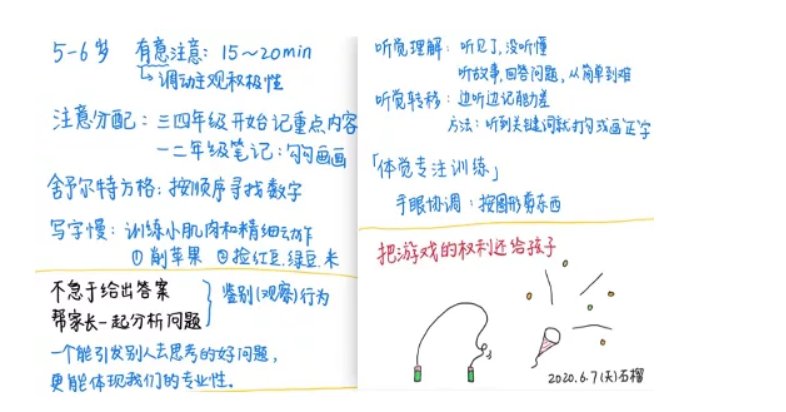 5-6岁 有意注意：15～20min
↳调动主观积极性
注意分配：三四年级开始记重点内容
一二年级笔记：勾勾画画
舒尔特方格：按顺序寻找数字
写字慢：训练小肌肉和精细动作
①削苹果 ②捡红豆.绿豆.米
不急于给出答案
帮家长一起分析问题
鉴别(观察)行为
一个能引发别人去思考的好问题，
更能体现我们的专业性.
听觉理解：听见了,没听懂
听故事,回答问题,从简单到难
听觉转移：边听边记能力差
方法：听到关键词就打勾或画正字
「体觉专注训练」
手眼协调：按图形剪东西
把游戏的权利还给孩子
2020.6.7(天)石榴